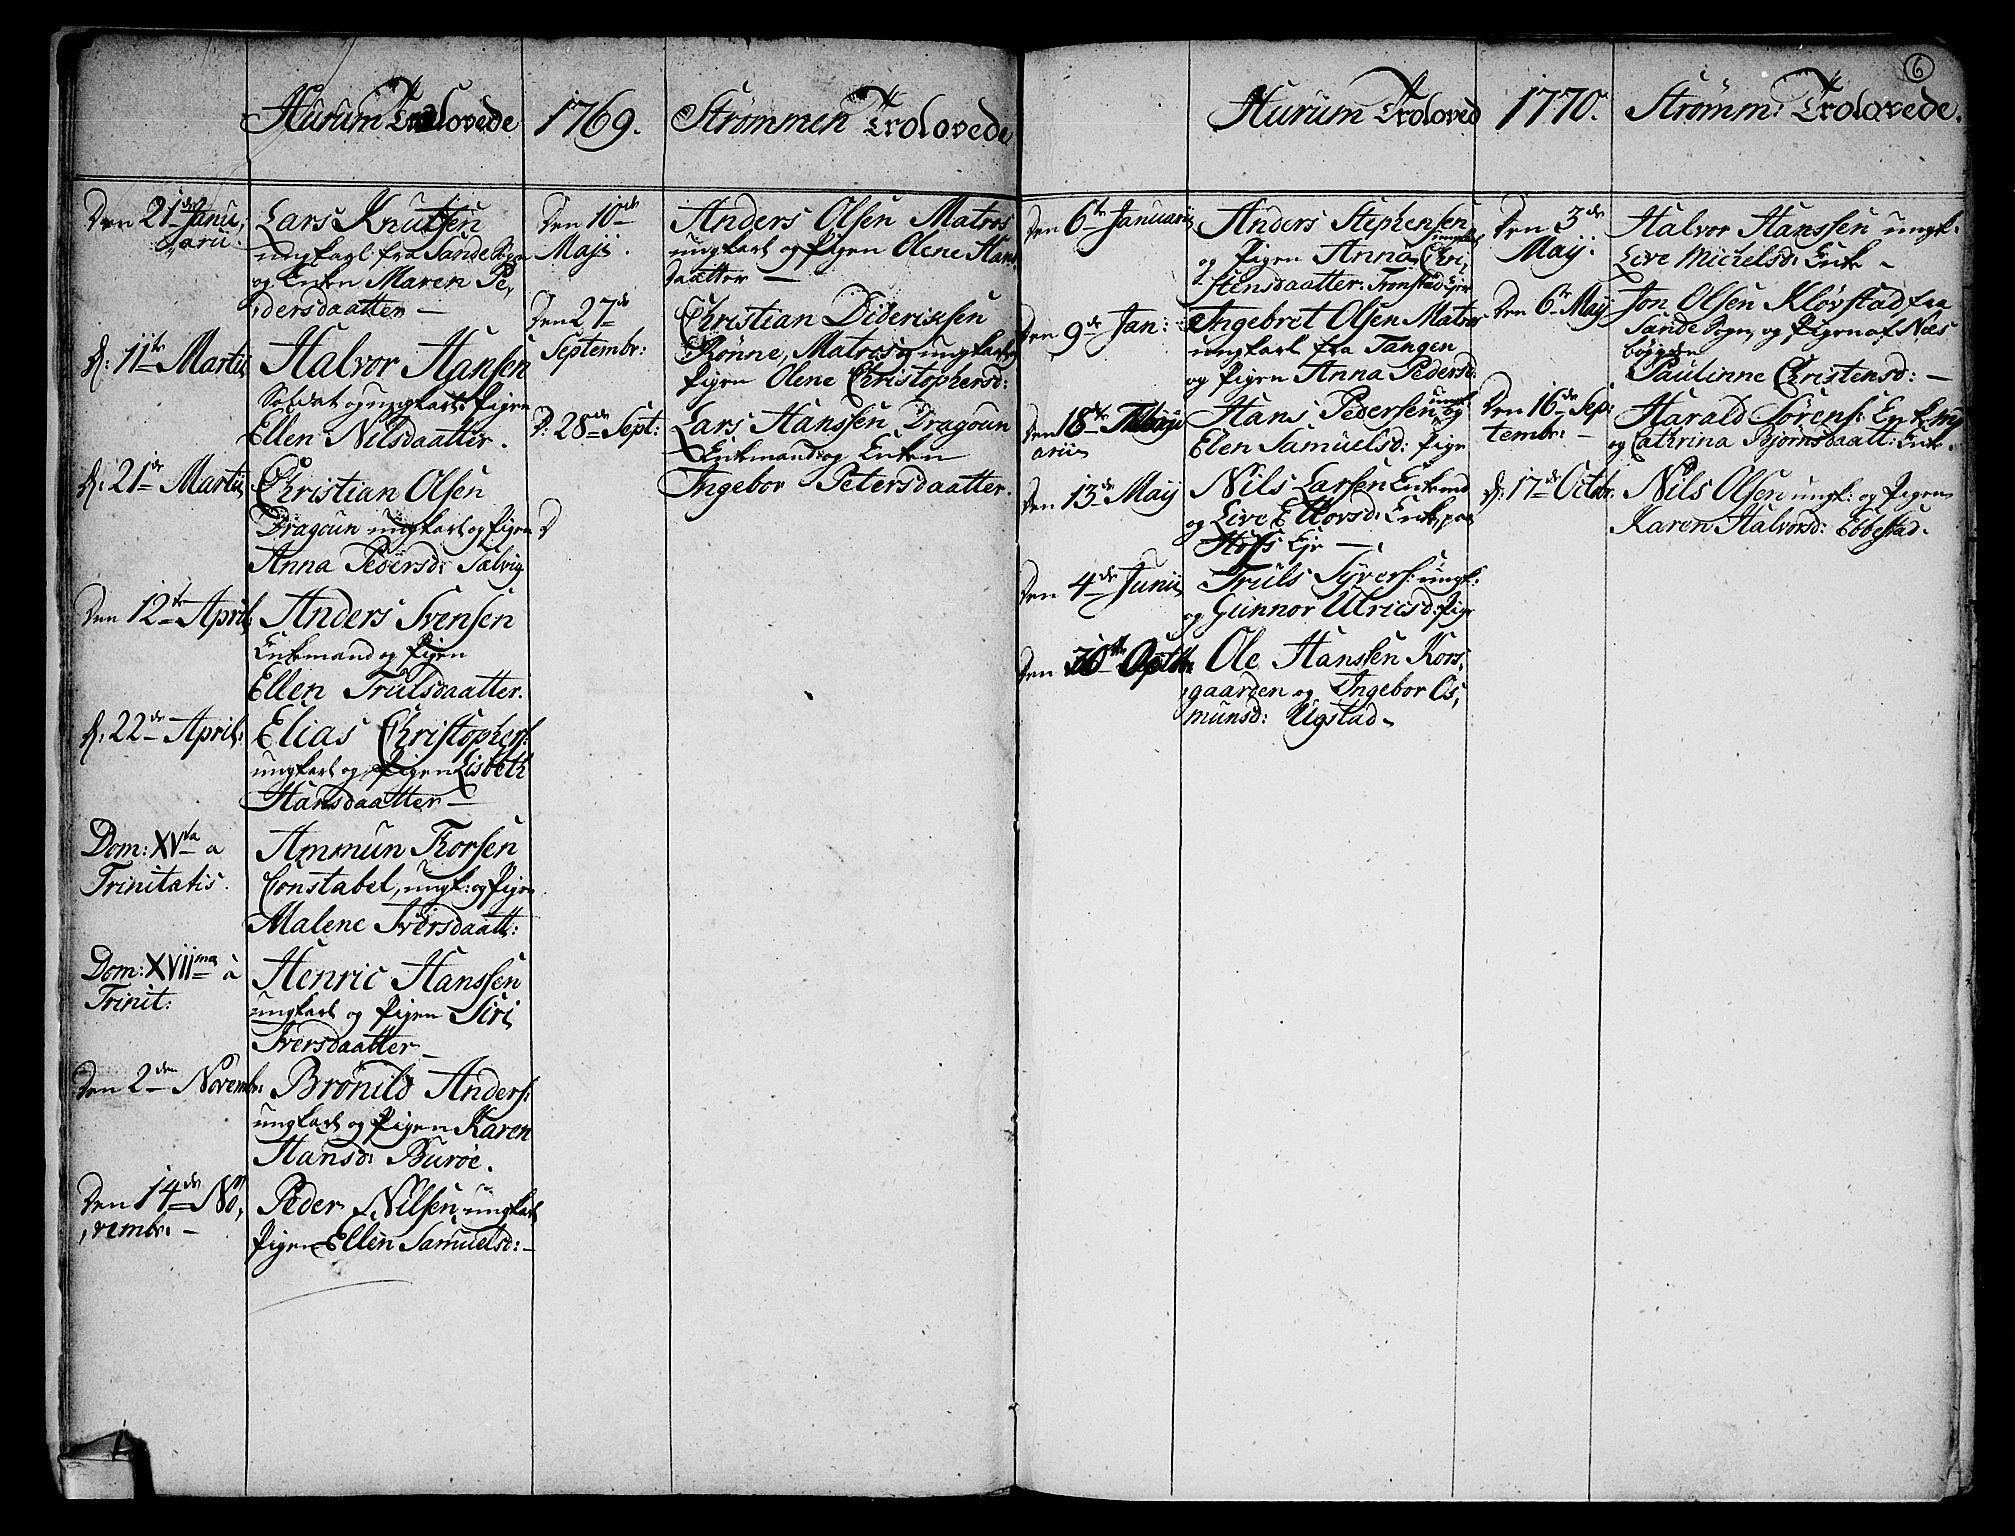 Hurum Trolovede
1769.
Strømmen Trolovede
Den 21de Janu,
arii.
Lars Knutsen
ungkarl fra Sande Sogn
og Enken Maren Pe,
dersdaatter —
D: 11te Martii
Halvor Hansen
Soldat og ungkarl: Pigen
Ellen Nilsdaatter.
D: 21de Martii
Christian Olsen
Dragoun ungkarl og Pigen
Anna Peders d: Sælvig
Den 12te April:
Anders Svensen
Enkemand og Pigen
Ellen Trulsdaatter.
D: 22de April:
Elias Christophers:
ungkarl og Pigen Lisbeth
Hansdaatter —
Dom: XVta a
Trinitatis.
Ammun Thorsen
Constabel, ungk: og Pigen
Malene Iversdaatt:
Dom: XVIIma à
Trinit:
Henric Hanssen
ungkarl og Pigen Siri
Iversdaatter —
Den 2den Novembr:
Brønild Anders:
ungkarl og Pigen Karen
Hansd: Burøe.
Den 14de No,
vembr: —
Peder Nilsen, ungkarl
Pigen Ellen Samuelsd: —
Den 10de
Maji.
Anders Olsen Matros
ungkarl og Pigen Olene Hans
daatter —
Den 27de
Septembr:
Christian Dideriksen
Rønne, Matros og ungkarl
Pigen Olene Christophersd:
D: 28de Sept:
Lars Hanssen Dragoun
Enkemand og Enken
Ingebor Petersdaatter.
D
6
Hurum Troloved
1770.
Strømm: Trolovede.
Den 6te Januarii
Anders Stephensen
ungkarl
og Pigen Anna Chri,
stensdaatter: Tronstad Eje
Den 9de Jan:
Ingebret Olsen Matros
ungkarl fra Tangen
og Pigen Anna Pedersd:
Den 18te
arii
Hans Pedersen ungk: og
Elen Samuelsd: Pige
Den 13de Maij
Nils Larsen Enkemd
og Live Ellovsd: Enke, paa
Hoffs Eje —
Den 4de Junii
Truls Syvers: ungk:
og Gunnor Ulricsd: Pige
Den 30te
Ole Hanssen Kors,
gaarden og Ingebor Os,
munsd: Ugstad.
Den 3de
Maij:
Halvor Hanssen ungk:
Live Michelsd: Enke —
Den 6te Maij
Jon Olsen Kløvstad fra
Sande Sogn, og Pigen af Næs
bøygden
Paulinne Christensd: —
Den 16de Sep:
tembr: —
Harald Sørens: Enkemd
og Cathrina Bjørnsdaatt: Enke.
D: 17de Octobr:
Nils Olsen ungk: og Pigen
Karen Halvorsd: Ebbestad.